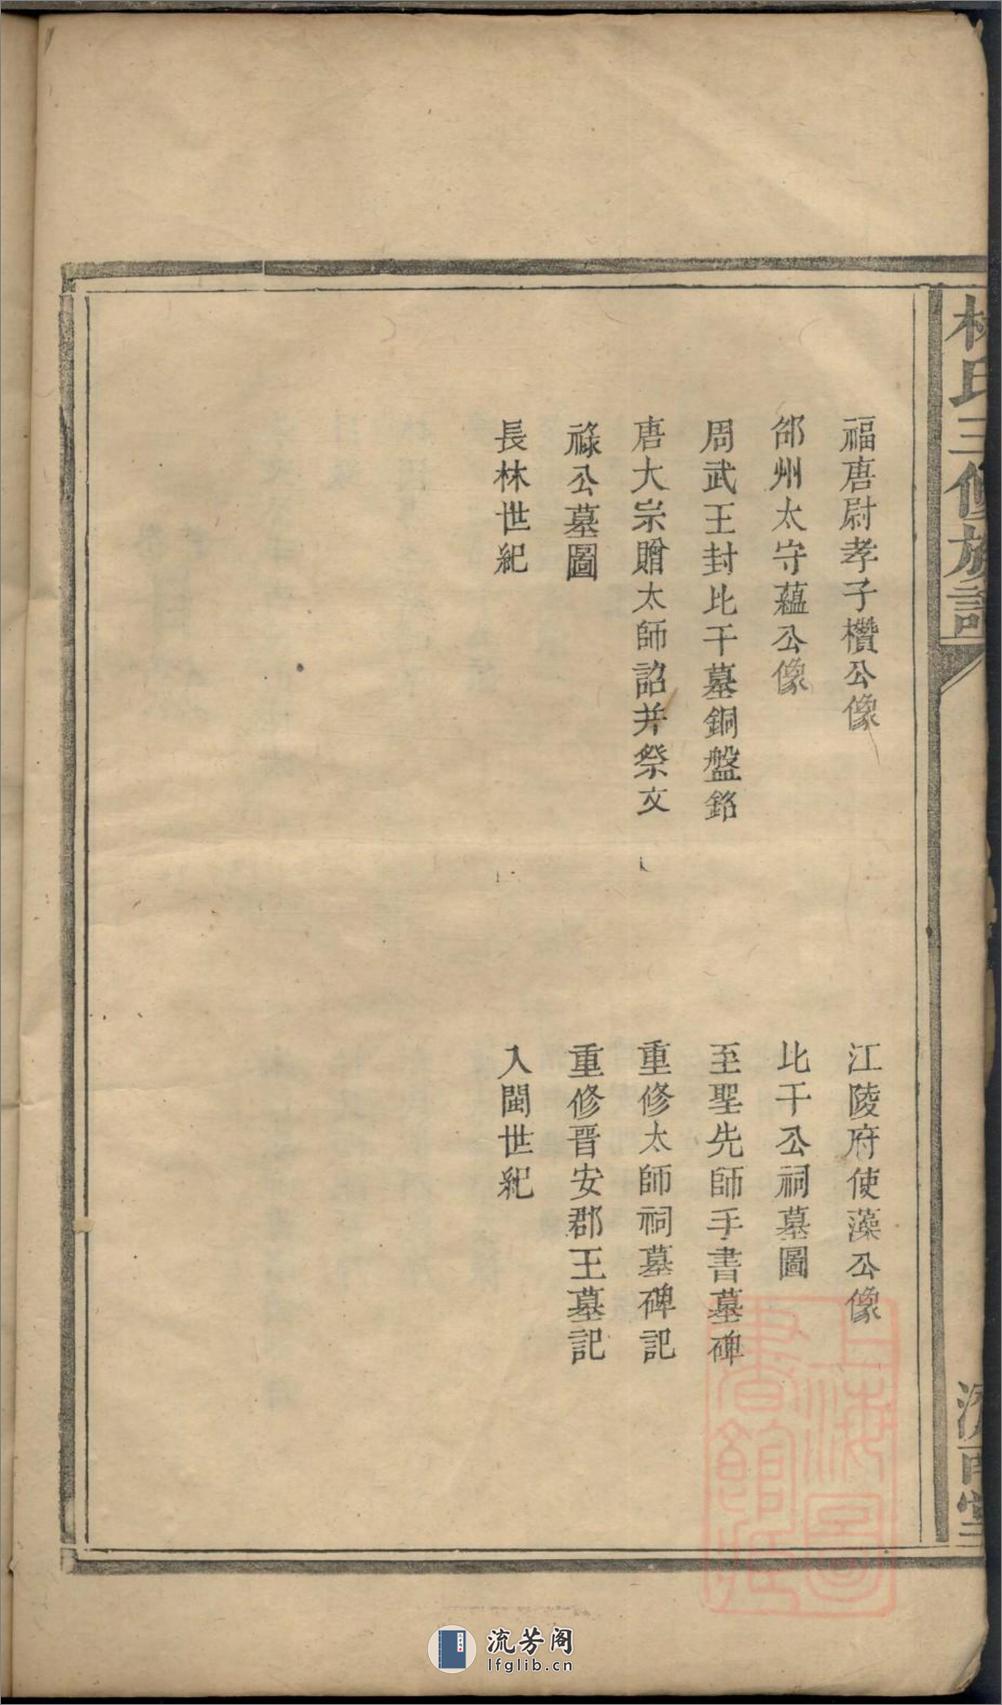 林氏三修族譜
濟南堂
福唐尉孝子欑公像
江陵府使藻公像
邵州太守蘊公像
比干公祠墓圖
周武王封比干墓銅盤銘
至聖先師手書墓碑
唐太宗贈太師詔并祭文
重修太師祠墓碑記
祿公墓圖
重修晋安郡王墓記
長林世紀
入閩世紀
上海圖
書館藏
流芳阁
lfglib.cn